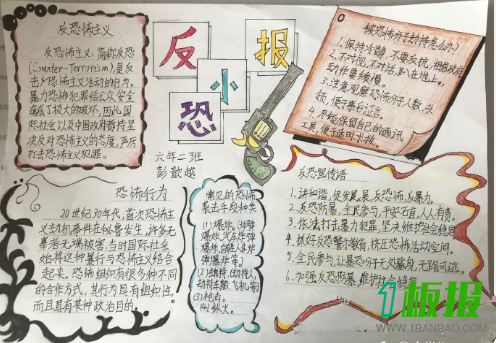 反恐怖主义
反恐怖主义，简称反恐
(Counter-Terrorism)，是反
击恐怖主义活动的行为。
暴力恐怖犯罪给公众安全
造成了极大的破坏，因此国
际社会以及中国政府都持坚
决反对恐怖主义的态度，严厉
打击恐怖主义犯罪。
反恐
小报
六年二班
被恐怖分子劫持怎么办？
1.保持冷静，不要反抗，相信政府
2.不对视，不对话，趴在地上，
动作要缓慢。
3.注意观察恐怖分子人数，头
领，便于事后证实。
4.尽可能保留自己的通讯
工具，便于适时报警
恐怖行为
20世纪30年代，首次恐怖主
义劫机事件在秘鲁发生，许多无
辜者无端被害，当时国际社会
始将这种暴行与恐怖主义结合
起来。恐怖组织有很多种不同
的合作方式，其行为具有组织性，
而且具有某种政治目的。
常见的恐怖
袭击手段种类
(1)爆炸、
爆炸、汽车炸弹
爆炸、自杀人体炸
弹爆炸等。)
(2)劫持、(劫持人，
劫持车、船、飞机等)
(3)枪击。
(4)纵火。
反恐宣传语
1.讲和谐，促发展，反恐怖，反暴力。
2.反恐防暴，主动参与，平安石首，人人有责。
3.依法打击暴力犯罪，坚决维护社会稳定
4.抓好反恐警示教育，挤压恐怖活动空间。
5.全民参与，让暴恐分子无处藏身，无路可逃。
6.加强反恐防暴，维护社会稳定
1板报
WWW.1BANBAO.COM